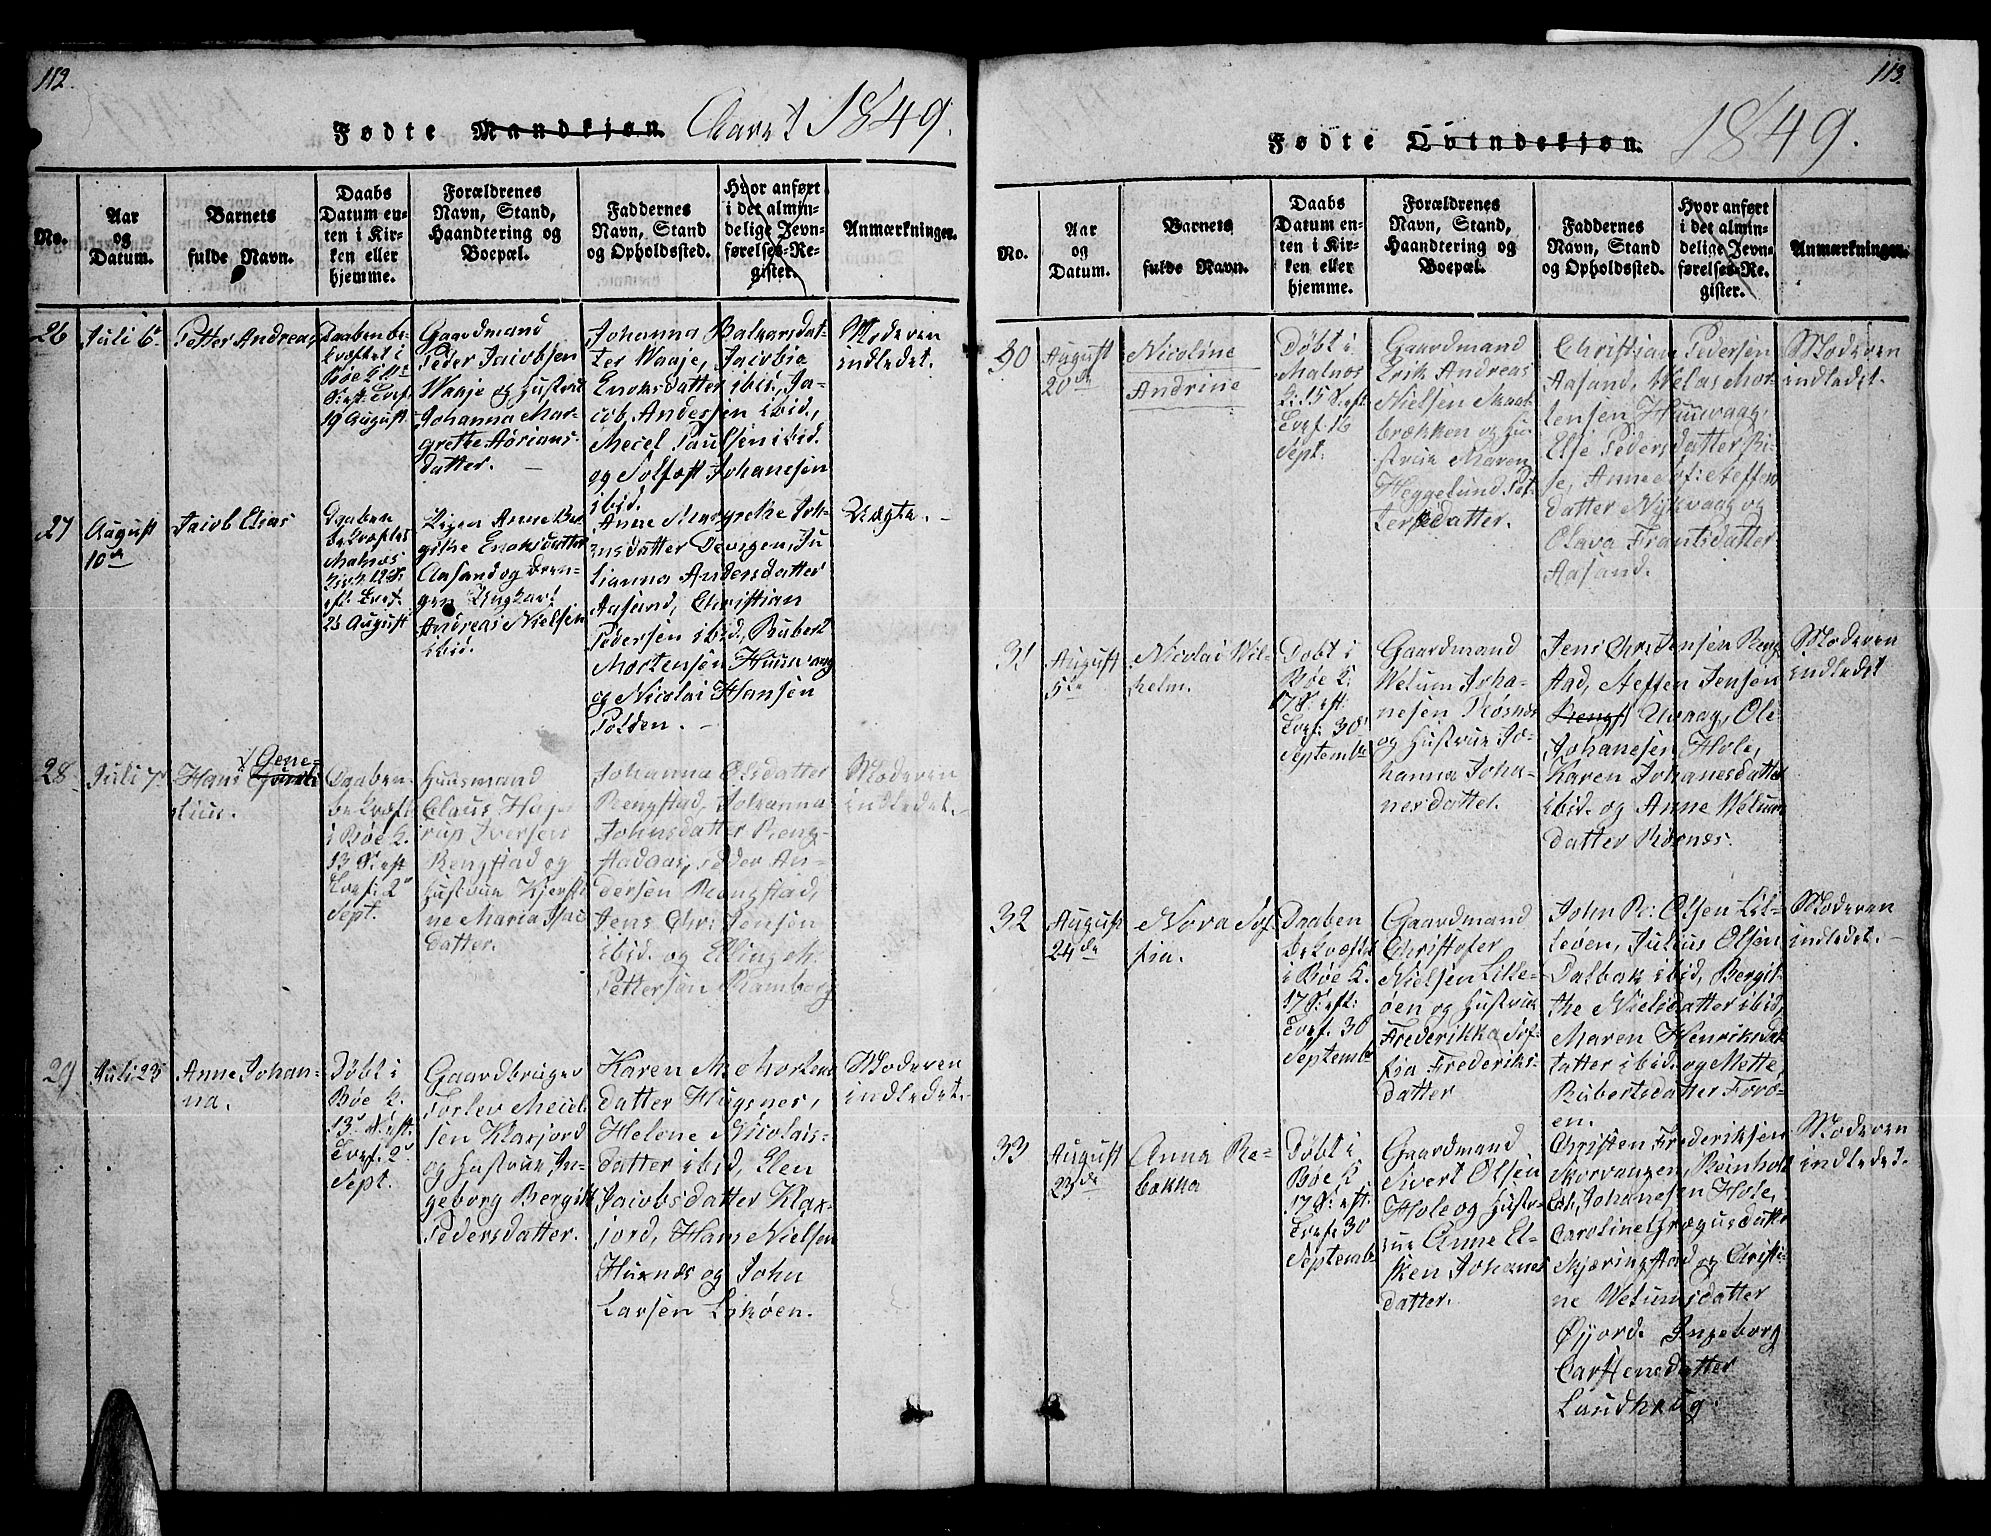 112.
Fødte Mandkjøn. Aaret 1849.
No.
Aar
og
Datum.
Barnets
fulde Navn.
Daabs
Datum en-
ten i Kir-
ken eller
hjemme.
Forældrenes
Navn, Stand,
Haandtering og
Boepæl.
Faddernes
Navn, Stand
og Opholdssted.
Hvor anført
i det almin-
delige Jevn-
førelses-Re-
gister.
Anmærkninger.
26
Juli 6
Petter Andreas
Daaben be-
kræftet i
Bøe K.
S. eft. Tref.
19 August
Gaardmand
Peder Jacobsen
Waaje og Hustrue
Johanna Mar-
grethe Adrians-
datter.
Johanna Balzarsdat-
ter Waaje, Jacobia
Enoksdatter ibid, Ja-
cob Andersen ibid,
Mecel Paulsen ibid.
og Solfæst Johanesen
ibid.
Moderen
indledet.
27
August
10de
Jacob Elias
Daaben
bekræftet
Malnæs
Kirk. 12 S.
eft. Tref.
25 August
Pigen Anne Ber-
githe Enoksdatter
Aasand og Dren-
gen Ungkarl
Andreas Nielsen
ibid.
Anne Margrethe Joh-
ensdatter Devigen, Ju-
lianna Andersdatter
Aasand, Christian
Pedersen ibid, Rubert
Mortensen Huusvaag
og Nicolai Hansen
Polden.
Uægte.
28
Juli 7
Hans Gene-
tius.
Daaben
bekræft
i Bøe K.
13 S. eft
Tref. 2
Sept.
Huusmand
Claus Hage-
rup Iversen
Rengstad og
Hustrue Kjersti-
ne Maria Isac
datter.
Johanna Olsdatter
Rengstad, Johanna
Johnsdatter Reng-
stadaas, Peder An-
dersen Rengstad,
Jens Chr: Jensen
ibid. og Elling M.
Pettersen Ramberg
Moderen
indledet.
29
Juli 23
Anne Johan-
na.
Døbt i
Bøe K.
13 S. eft.
Tref. 2
Sept.
Gaardbruger
Torlev Meiel-
sen Klaxjord
og Hustrue In-
geborg Bergitt
Pedersdatter.
Karen M. Mortens
datter Hugsnes,
Helene Nicolais-
datter ibid, Elen
Jacobsdatter Klax-
jord, Hans Nielsen
Huxnæs og John
Larsen Likøen.
Moderen
indledet.
113.
Fødte Qvindekjøn. 1849.
No.
Aar
og
Datum.
Barnets
fulde Navn.
Daabs
Datum en-
ten i Kir-
ken eller
hjemme.
Forældrenes
Navn, Stand,
Haandtering og
Boepæl.
Faddernes
Navn, Stand
og Opholdssted.
Hvor anført
i det almin-
delige Jevn-
førelses-Re-
gister.
Anmærkninger.
30
August
20de
Nicoline
Andrine
Døbt i
Malnæs
K. 15 S. eft.
Tref. 16
Sept.
Gaardmand
Erik Andreas
Nielsen
brækken og Hu-
strue Maren
Heggelund Pet-
tersdatter.
Christian Pedersen
Aasand, Welas Mor-
tensen Huusvaag,
Else Pedersdatter Ri-
se, Anne Steffens
datter Nykvaag og
Olava Frantsdatter
Aasand.
Moderen
indledet.
31
August
5te
Nicolai Wil-
helm.
Døbt i
Bøe K.
17 S. eft.
Tref. 30
Septembr
Gaardmand
Welum Joha-
nesen Røsnæs
og Hustrue Jo-
hanna Joha-
nesdatter.
Jens Chr: Jensen Reng-
stad, Steffen Jensen
Rengst Uvaag, Ole
Johanesen Hole,
Karen Johanesdatter
ibid. og Anne Welums
datter Røsnæs.
Moderen
indledet
32
August
24de
Nora Sof-
fia.
Daaben
bekræftet
i Bøe K.
17 S. eft:
Tref. 30
Septembr
Gaardmand
Christofer
Nielsen Lille-
øen og Hustrue
Frederikka Sof-
fia Frederiks-
datter
John P: Olsen Lil-
leøen, Julius Olsen
Dalbak ibid, Bergit-
the Nielsdatter ibid,
Maren Henriksdat-
tatter ibid. og Mette
Rubertsdatter Forø-
en.
Moderen
indledet.
33
August
23de
Anna Re-
bekka
Døbt i
Bøe K
17 S. eft.
Tref. 30
Septembr
Gaardmand
Sivert Olsen
Hole og Hustr-
rue Anne El-
sken Johanes
datter.
Christen Frederiksen
Skorvangen, Reinholt
Johanesen Hole,
Caroline Grægusdatter
Skjæringstad og Christi-
ne Welumsdatter
Øjjord. Ingeborg
Carstensdatter
Laudhaug.
Moderen
indledet.